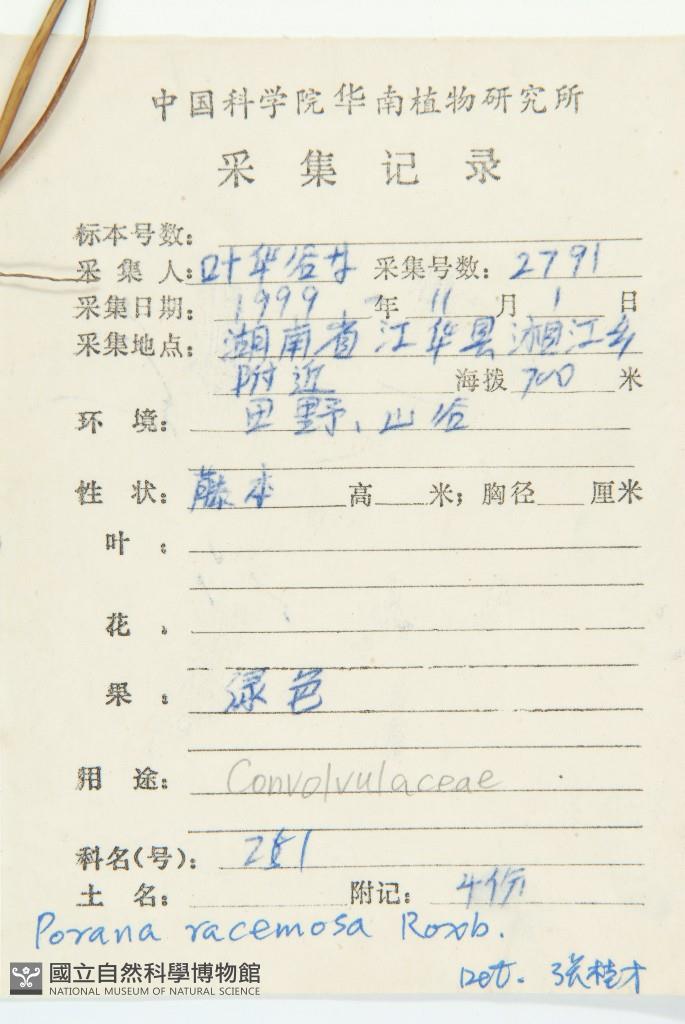 中国科学院华南植物研究所
采集记录
标本号数:
采集人: 叶华谷等 采集号数: 2791
采集日期: 1999 年 11 月 1 日
采集地点: 湖南省江华县湘江乡
附近 海拨 700 米
环境: 田野、山谷
性状: 藤本 高 米; 胸径 厘米
叶:
花:
果: 绿色
用途: Convolvulaceae
科名(号): 251
土名: 附记: 4份
Porana racemosa Roxb.
Det. 张桂才
國立自然科學博物館
NATIONAL MUSEUM OF NATURAL SCIENCE